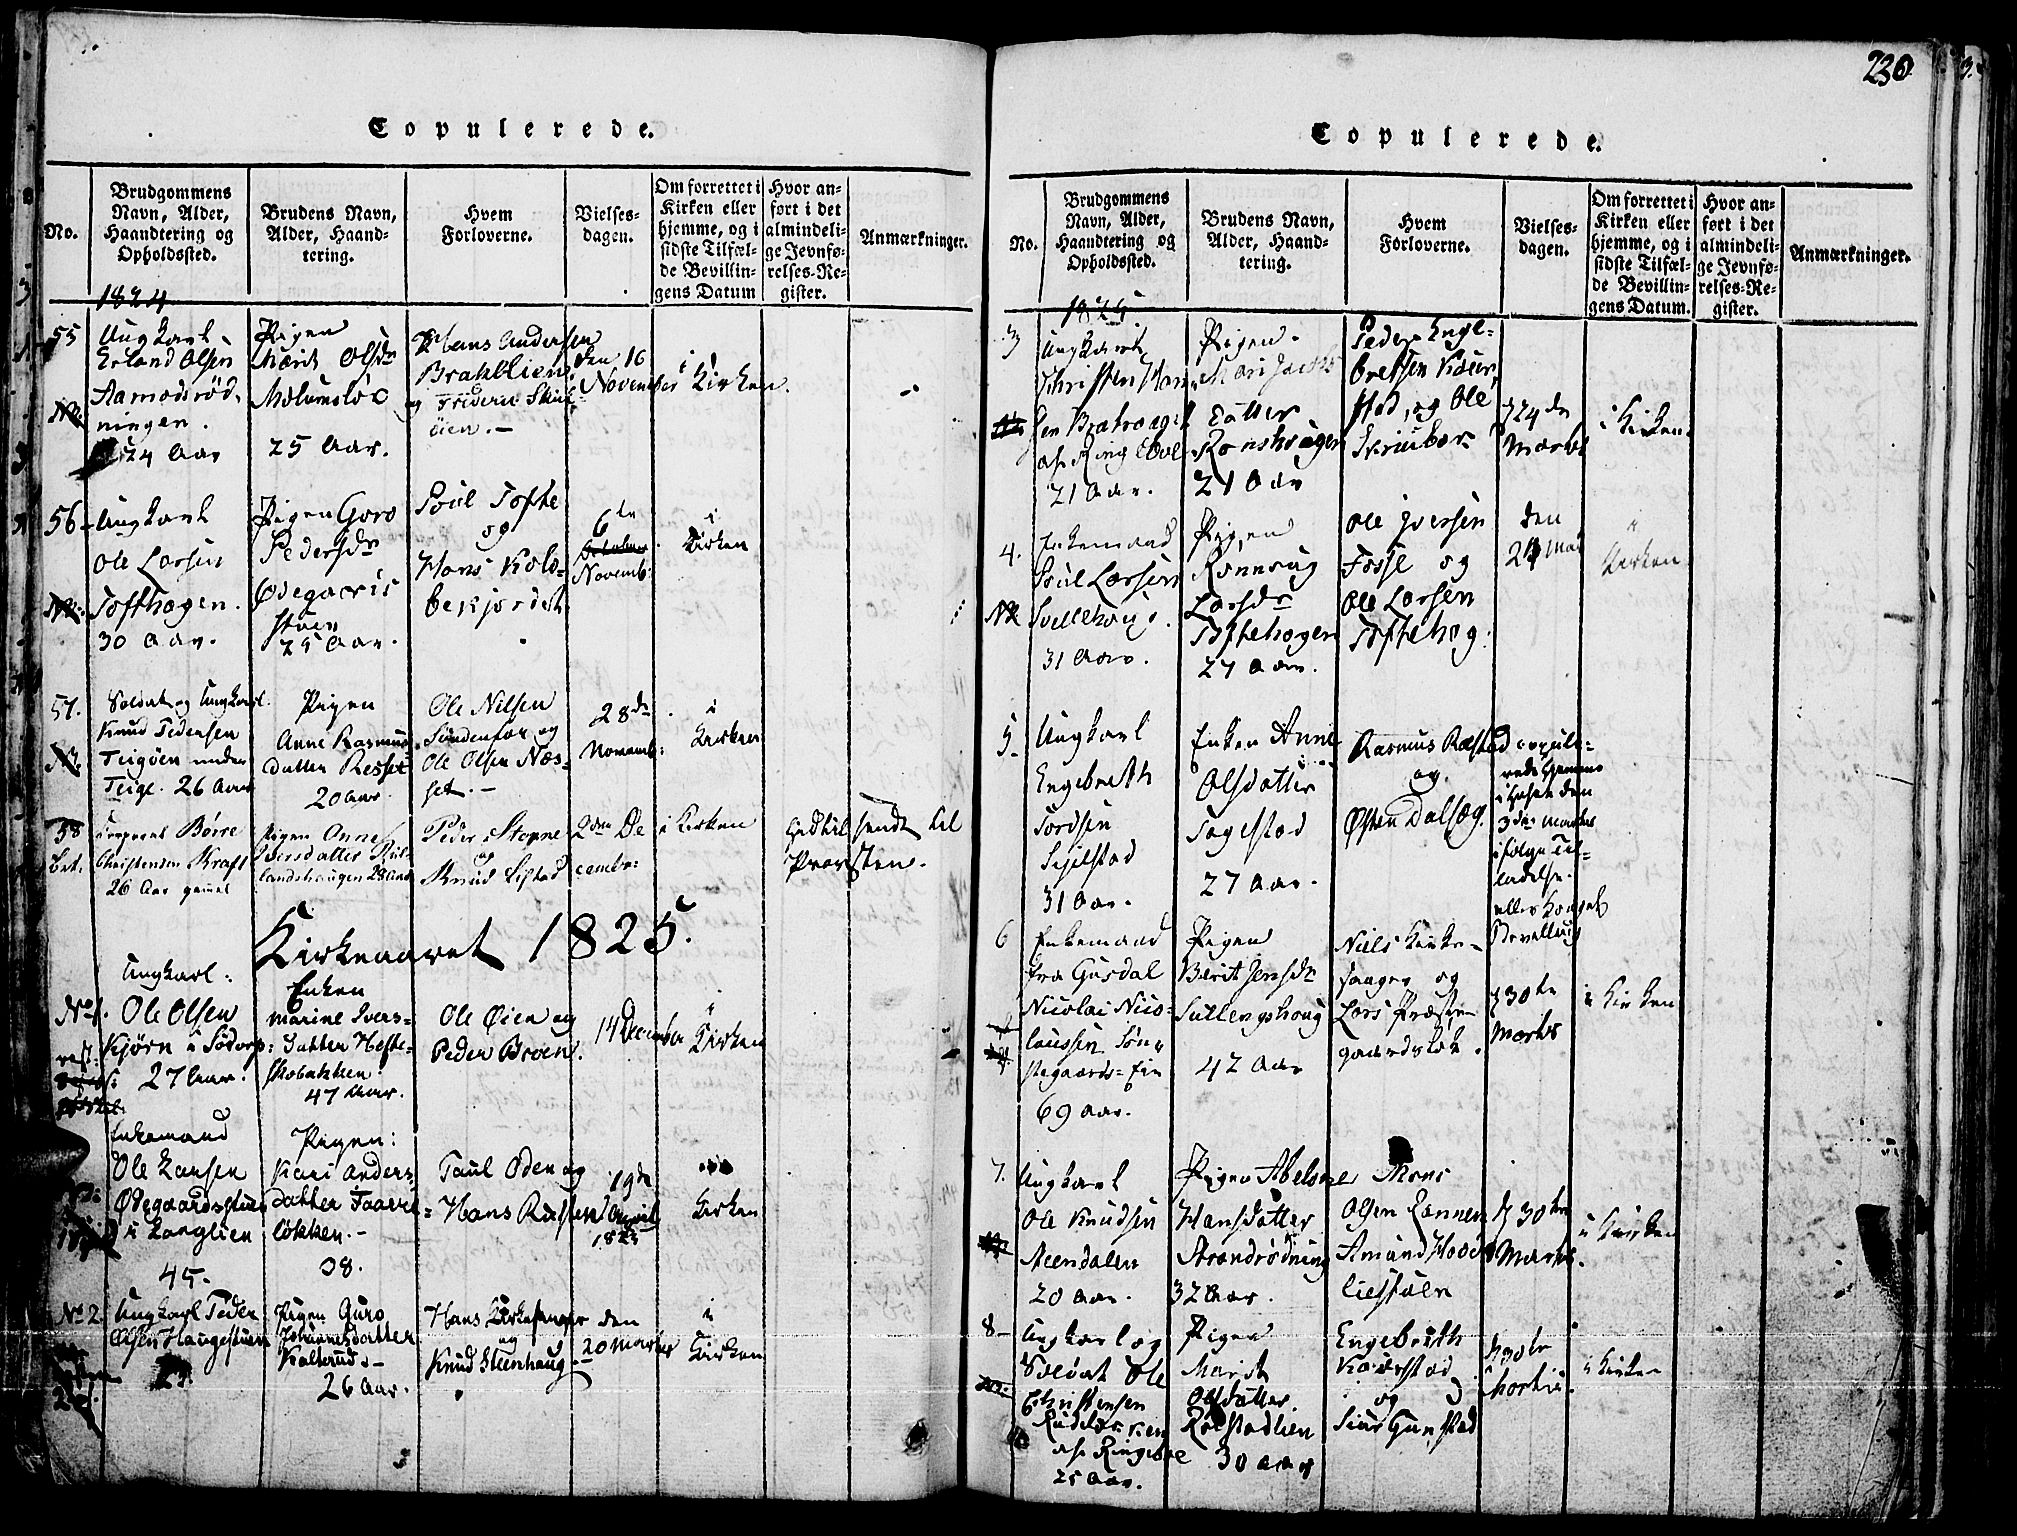 230
Copulerede.
No.
Brudgommens
Navn, Alder,
Haandtering og
Opholdssted.
Brudens Navn,
Alder, Haand-
tering.
Hvem
Forloverne.
Vielses-
dagen.
Om forrettet i
Kirken eller
hjemme, og i
sidste Tilfæl-
de Bevillin-
gens Datum
Hvor an-
ført i det
almindeli-
ge Jevnfø-
relses-Re-
gister.
Anmærkninger.
1824
55
Ungkarl
Erland Olsen
Aamodsrød-
ningen.
24 Aar
Pigen
Marit Olsdr
25 Aar.
Hans Andersen
Brakklien
og
øien.-
den 16
November
i Kirken
56
Ungkarl
Ole Larsen
Tofthagen.
30 Aar.
Pigen Goro
Pedersdr
Ødegaards
stuen
25 Aar.
Poul Tofte
og
Hans Kolo-
bekjordet
6te
Novemb:
i
Kirken
57.
Soldat og Ungkarl.
Knud Pedersen
Teigøen under
Teige. 26 Aar
Pigen
Anne Rasmus-
datter Resset
20 Aar
Ole Nilsen
Sundenfor og
Ole Olsen Næs-
set.-
28de
Novemb:
i
Kirken
58
Corporal Børre
Christensen Kraft
26 Aar gamel
Pigen Anne
Iversdatter Rus-
landshaugen 28 Aar
Peder Stogne
og
Knud Listad
2den De
cembr:
i Kirken
sendt til
Provsten.
Kirkeaaret 1825.
No 1.
Ungkarl:
Ole Olsen
Kjørn i Sødorp:
27 Aar.
Enken
Marine Ivers-
datter Hefte-
skobakken
47 Aar.
Ole Øien og
Peder Broen.
14 December
i
Kirken
Enkemand
Ole Larsen
Ødegaardsstuen
i Langlien
45.
Pigen:
Kari Anders-
datter Faavre-
løkken.-
38.
Paul Oden og
Hans Rusten
19de
April
1825
Kirken
No 2.
Ungkarl Peder
Olsen Haugestuen
Pigen Guro
Johannesdatter
Kalterud.-
26 Aar.
Hans Kirkesanger
og
Knud Steenhaug.-
den
20 Marts
i
Kirken
Copulerede.
No.
Brudgommens
Navn, Alder,
Haandtering og
Opholdssted.
Brudens Navn,
Alder, Haand-
tering.
Hvem
Forloverne.
Vielses-
dagen.
Om forrettet i
Kirken eller
hjemme, og i
sidste Tilfæl-
de Bevillin-
gens Datum.
Hvor an-
ført i det
almindeli-
ge Jevnfø-
relses-Re-
gister.
Anmærkninger.
1825
3
Ungkarl
Christen Han-
sen
af Ringeboe
21 Aar.
Pigen
Mari Jacobs
datter
Ronshaugen
21 Aar
Peder Enge-
bretsen Kaur-
stad, og Ole
Skriubær
d 24de
Marts
i Kirken
4.
Enkemand
Poul Larsen
31 Aar.
Pigen
Rønnoug
Larsdr
Toftehagen
27 Aar.
Ole Iversen
Fosse og
Ole Larsen
Toftehag.
den
24 Mai
i
Kirken
5.
Ungkarl
Engebreth
Tordsen
31 Aar.
Enken Anne
Olsdatter
Tagestad
27 Aar.
Rasmus Rolstad
og
Østen Dalseg.
copule-
rede hjemme
i Huset den
3die Martes
ifølge Til-
ladelse
eller Kongel.
Bevilling
6
Enkemand
fra Gusdal
Nicolai Nico-
laussen Søn-
stegaards-Eie
69 Aar.
Pigen
Berit Jensdr
Sullengshoug
42 Aar
Niels Kirke-
sanger og
Lars Præste-
gaardsløk.
d 30te
Marts
i Kirken
7.
Ungkarl
Ole Knudsen
Steendalen
20 Aar.
Pigen Abelone
Hansdatter
Strandrødning
32 Aar.
Mons
Olsen Lannem
Amund Hovde
liestuen
d 30te
Marts.
i Kirken
8-
Ungkarl og
Soldat Ole
Christensen
af Ringeboe
25 Aar.
Pigen
Marit
Olsdatter
Rolstadlien
30 Aar
Engebreth
Kaurstad
og
Siur Gunstad
d 30te
Martii.
i Kirken